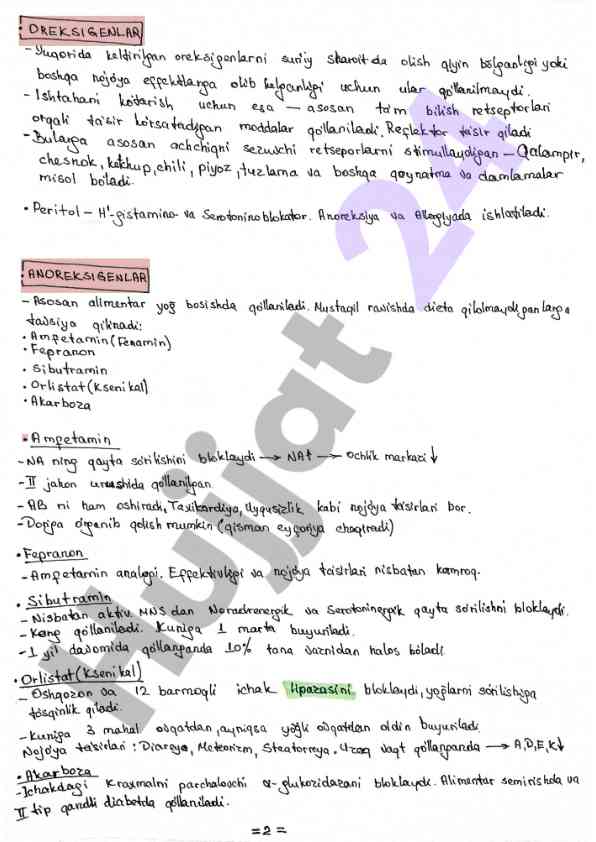 • OREKSIGENLAR
- Yuqorida keltirilgan oreksigenlarni sun'iy sharoitda olish qiyin bo'lganligi yoki
boshqa nojo'ya effektlarga olib kelganligi uchun ular qo'llanilmaydi.
- Ishtahani ko'tarish uchun esa — asosan ta'm bilish retseptorlari
orqali ta'sir ko'rsatadigan moddalar qo'llaniladi. Reflektor ta'sir qiladi
- Bularga asosan achchiqni sezuvchi retseporlarni stimullaydigan - Qalampir,
chesnok, ketchup, chili, piyoz, tuzlama va boshqa qaynatma va damlamalar
misol bo'ladi.
• Peritol - H¹-gistamino- va Serotoninoblokator. Anoreksiya va Allergiyada ishlatiladi.
• ANOREKSIGENLAR
- Asosan alimentar yog' bosishda qo'llaniladi. Mustaqil ravishda dieta qilolmaydiganlarga
tavsiya qilinadi:
• Ampetamin (Fenamin)
• Fepranon
• Sibutramin
• Orlistat (Ksenikal)
• Akarboza
• Ampetamin
- NA ning qayta so'rilishini bloklaydi → NA↑ → Ochlik markazi ↓
- II jahon urushida qo'llanilgan.
- AB ni ham oshiradi, Taxikardiya, Uyqusizlik kabi nojo'ya ta'sirlari bor.
- Doriga o'rganib qolish mumkin (qisman eyforiya chaqiradi)
• Fepranon
- Ampetamin analogi. Effektivligi va nojo'ya ta'sirlari nisbatan kamroq.
• Sibutramin
- Nisbatan aktiv. MNS dan Noradrenergik va Serotoninergik qayta so'rilishni bloklaydi.
- Keng qo'llaniladi. Kuniga 1 marta buyuriladi.
- 1 yil davomida qo'llanganda 10% tana vaznidan halos bo'ladi.
• Orlistat (Ksenikal)
- Oshqozon va 12 barmoqli ichak lipazasini bloklaydi, yog'larni so'rilishiga
to'sqinlik qiladi.
- Kuniga 3 mahal ovqatdan, ayniqsa yog'li ovqatdan oldin buyuriladi.
Nojo'ya ta'sirlari: Diareya, Meteorizm, Steatorreya. Uzoq vaqt qo'llanganda → A, D, E, K↓
• Akarboza
- Ichakdagi kraxmalni parchalovchi α-glukozidazani bloklaydi. Alimentar semirishda va
II tip qandli diabetda qo'llaniladi.
=2=
Hujjat 24